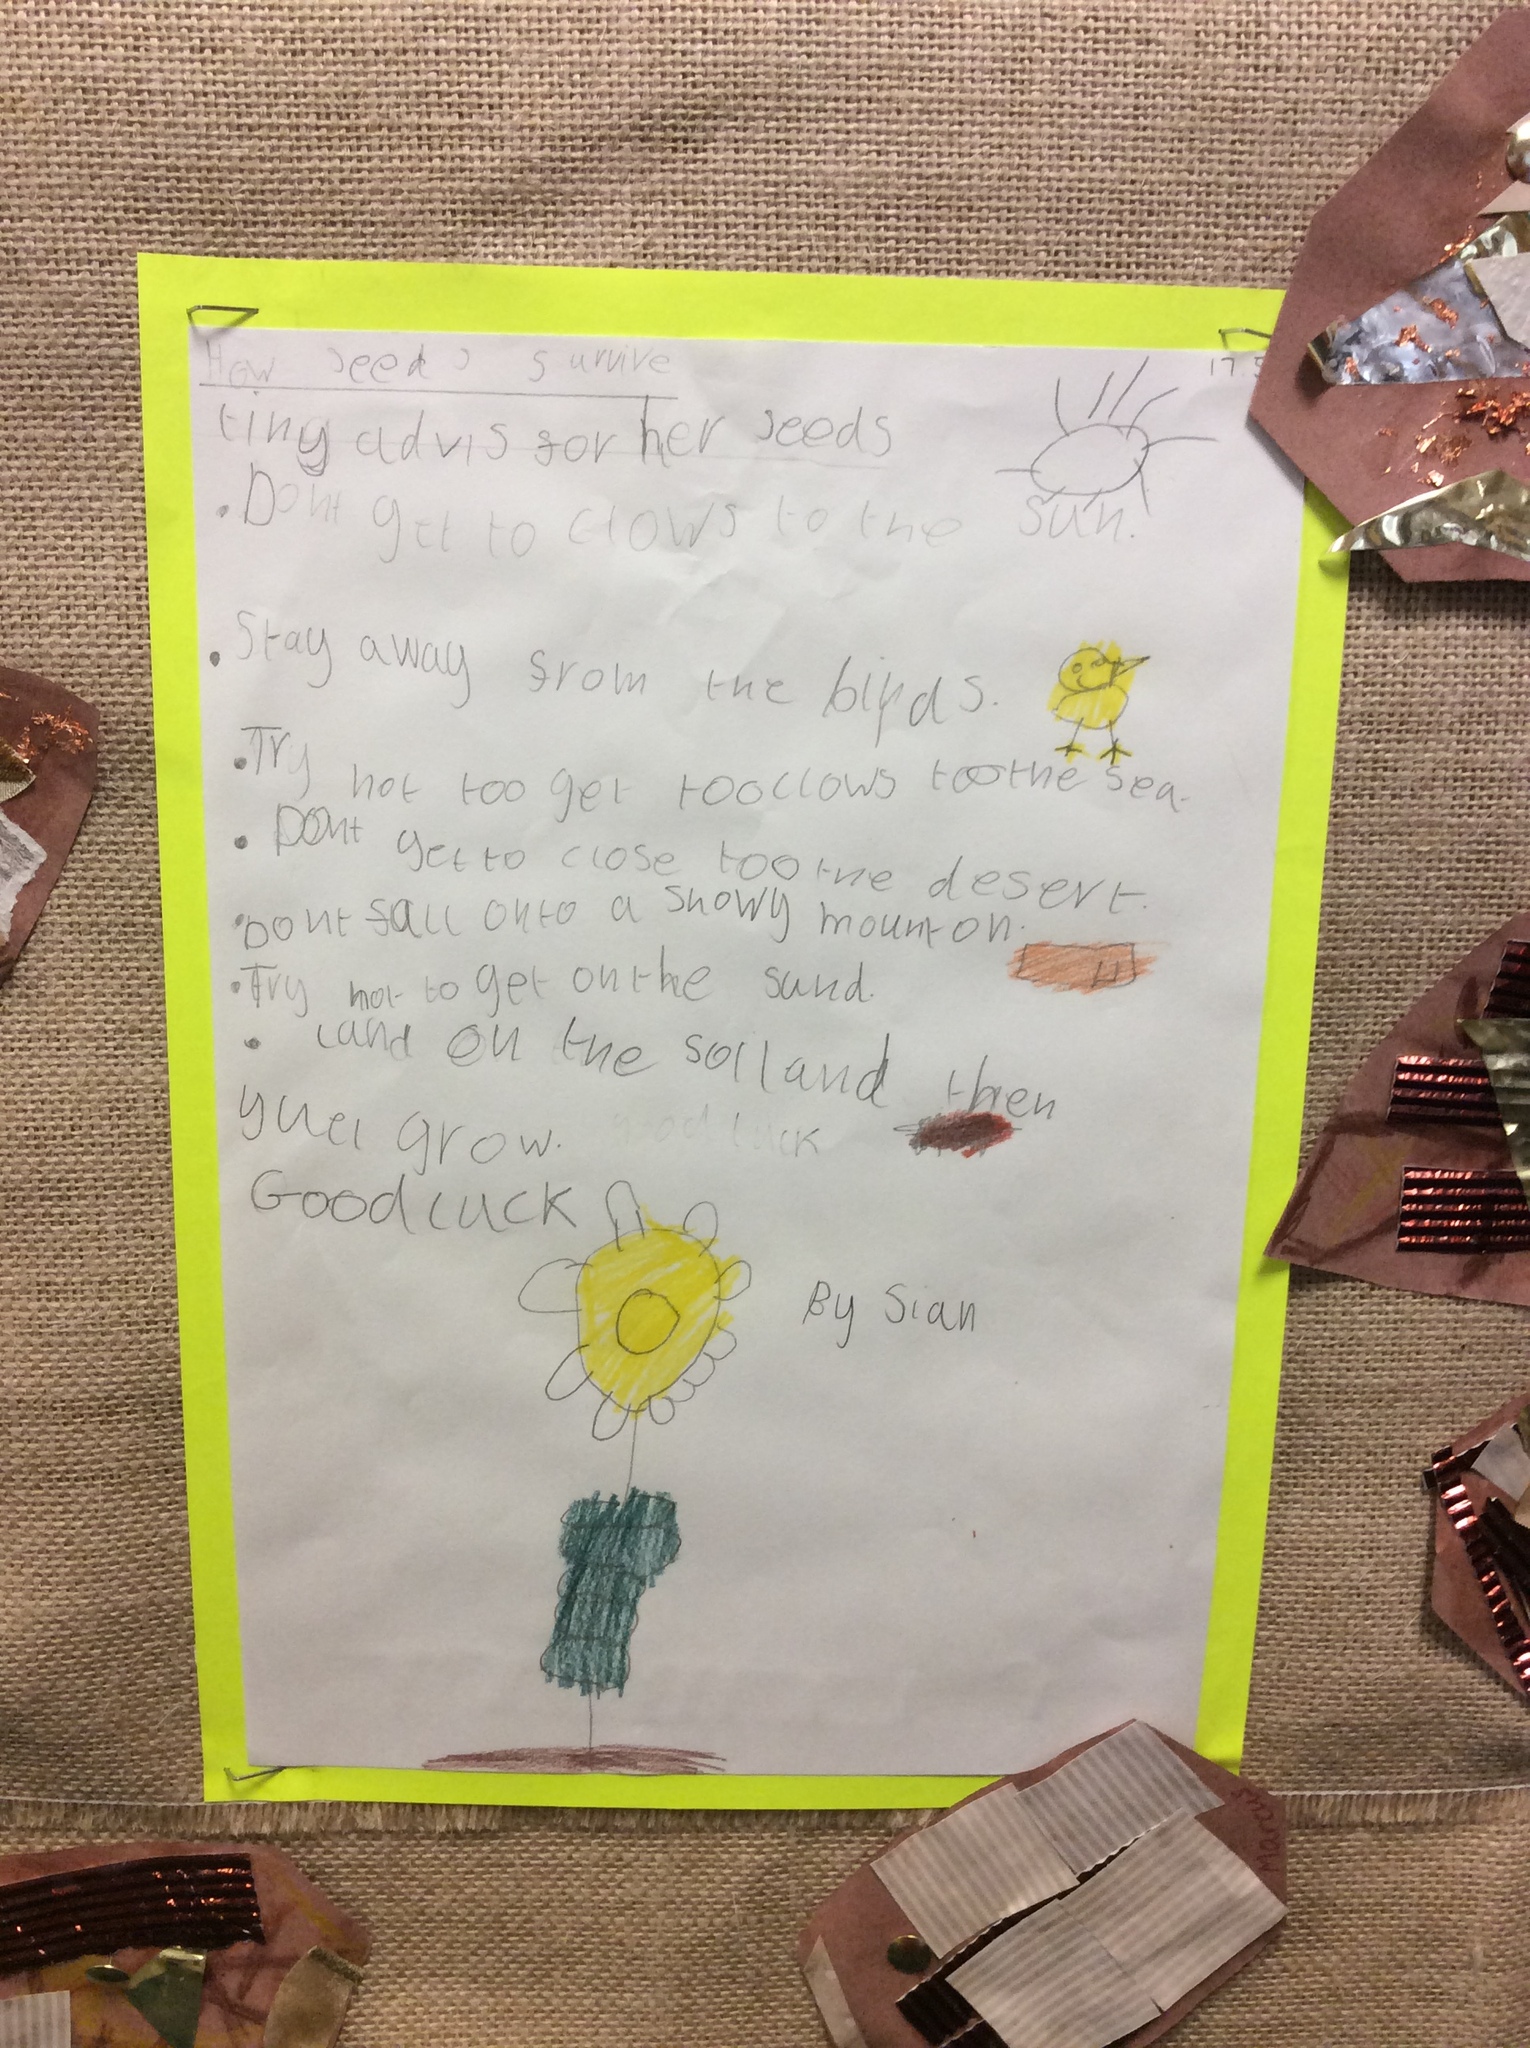 How seeds survive
17.5
tiny advis for her seeds
• Dont get to clows to the sun.
• Stay away from the birds.
• Try not too get too clows too the sea.
• Dont get to close too the desert.
• Dont fall onto a snowy mounton.
• Try not to get on the sand.
• Land on the soil and then
yuel grow. good luck
Good luck
By Sian
Marcus